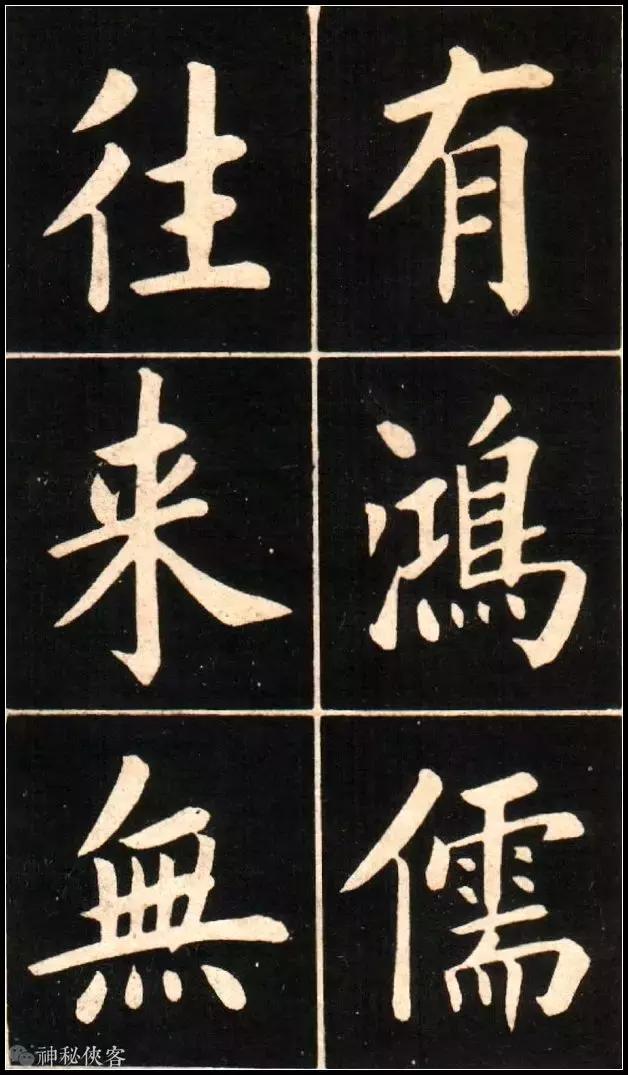 有鴻儒
往来無
神秘俠客